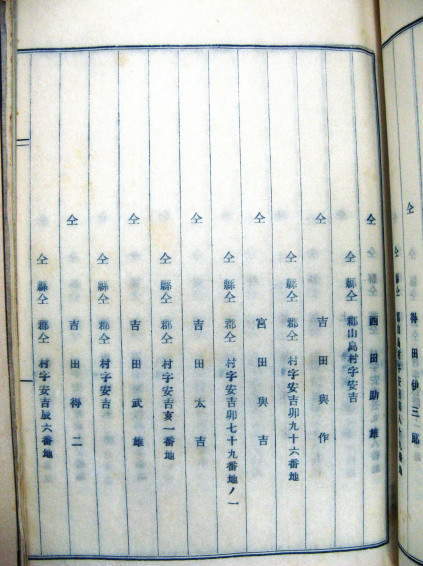 仝 得田伊三郎
仝 西田助雄
仝縣仝郡山島村字安吉
仝 吉田與作
仝縣仝郡仝村字安吉卯九十六番地
仝 宮田與吉
仝縣仝郡仝村字安吉卯七十九番地ノ一
仝 吉田太吉
仝縣仝郡仝村字安吉亥一番地
仝 吉田武雄
仝縣仝郡仝村字安吉
仝 吉田得二
仝縣仝郡仝村字安吉辰六番地